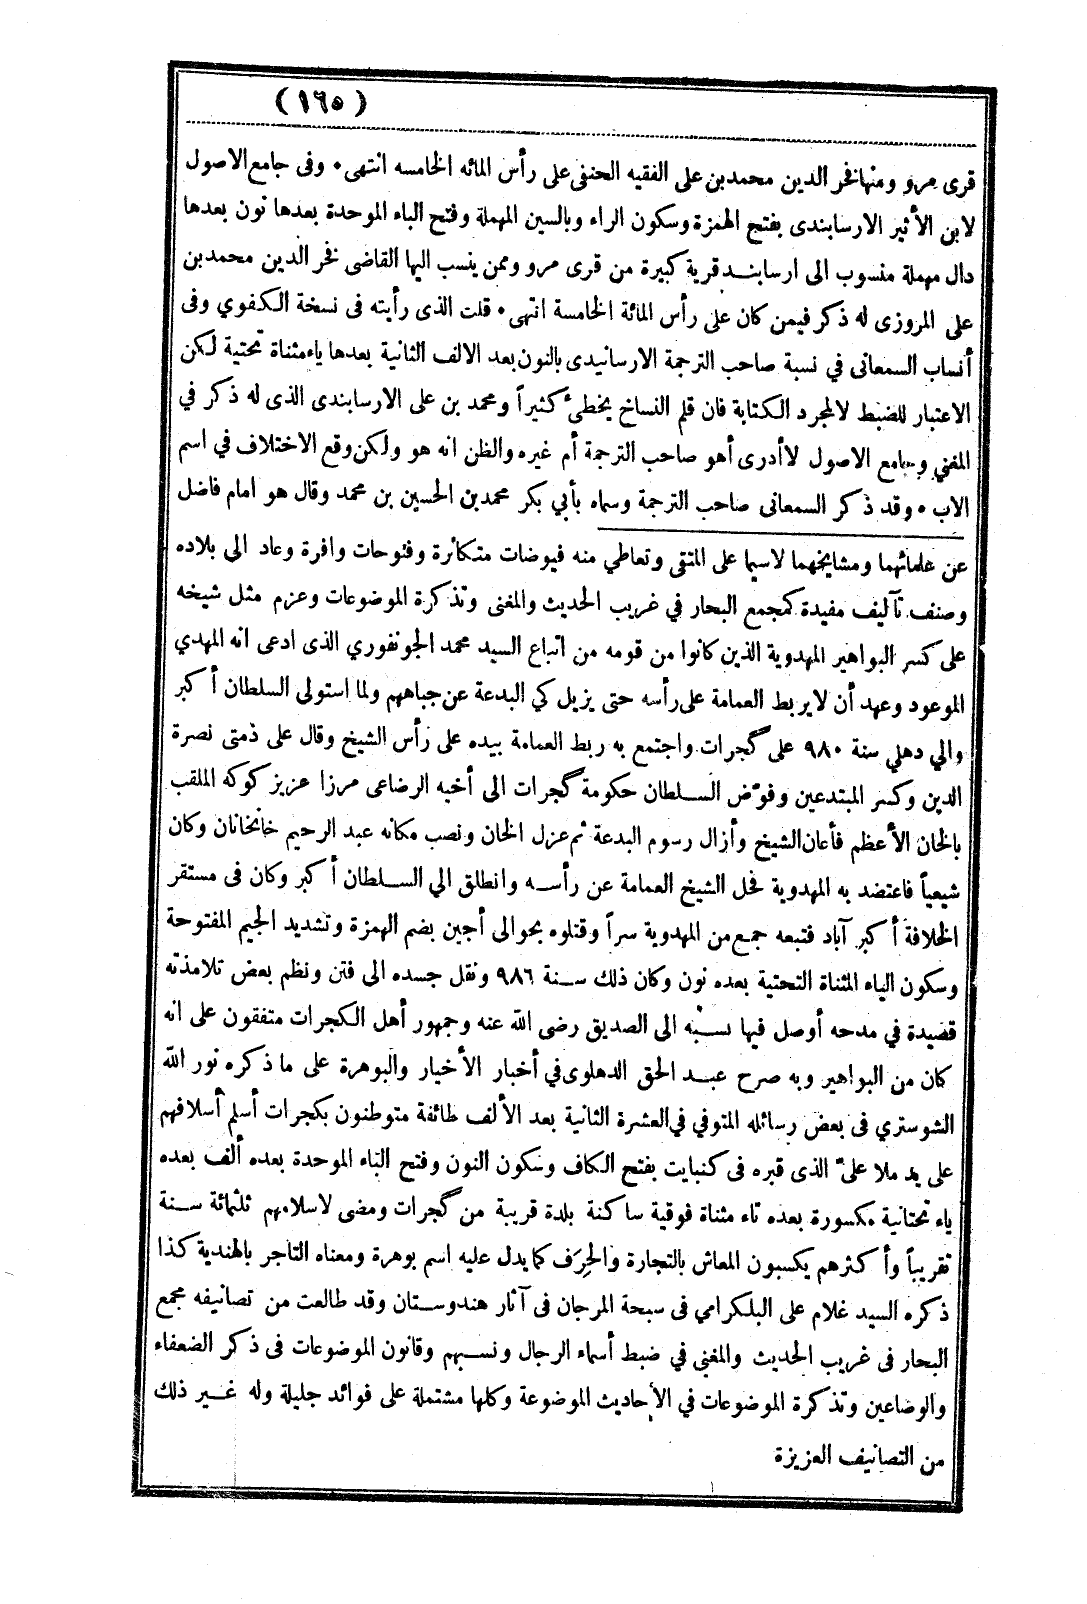 (١٦٥)
قرى مرو ومنها فخر الدين محمد بن على الفقيه الحنفى على رأس المائه الخامسه انتهى • وفى جامع الاصول
لابن الأثير الارسابندى بفتح الهمزة وسكون الراء وبالسين المهملة وفتح الباء الموحدة بعدها نون بعدها
دال مهملة منسوب الى ارسابند قرية كبيرة من قرى مرو وممن ينسب اليها القاضى فخر الدين محمد بن
على المروزى له ذكر فيمن كان على رأس المائة الخامسة انتهى • قلت الذى رأيته فى نسخة الكفوي وفى
أنساب السمعانى في نسبة صاحب الترجمة الارسانيدى بالنون بعد الالف الثانية بعدها ياء مثناة تحتية لكن
الاعتبار للضبط لالمجرد الكتابة فان قلم النساخ يخطىء كثيراً ومحمد بن على الارسابندى الذى له ذكر في
المغني وجامع الاصول لاأدرى أهو صاحب الترجمة أم غيره والظن انه هو ولكن وقع الاختلاف في اسم
الاب • وقد ذكر السمعانى صاحب الترجمة وسماه بأبي بكر محمد بن الحسين بن محمد وقال هو امام فاضل
عن علمائهما ومشايخهما لاسيما على المتقى وتعاطي منه فيوضات متكاثرة وفتوحات وافرة وعاد الى بلاده
وصنف تآليف مفيدة كمجمع البحار في غريب الحديث والمغنى وتذكرة الموضوعات وعزم مثل شيخه
على كسر البواهير المهدوية الذين كانوا من قومه من اتباع السيد محمد الجونفوري الذى ادعى انه المهدي
الموعود وعهد أن لايربط العمامة على رأسه حتى يزيل كي البدعة عن جباههم ولما استولى السلطان أكبر
والي دهلي سنة ٩٨٠ على گجرات واجتمع به ربط العمامة بيده على رأس الشيخ وقال على ذمتى نصرة
الدين وكسر المبتدعين وفوّض السلطان حكومة گجرات الى أخيه الرضاعى مرزا عزيز كوكه الملقب
بالخان الأعظم فأعان الشيخ وأزال رسوم البدعة ثم عزل الخان ونصب مكانه عبد الرحيم خانخانان وكان
شيعياً فاعتضد به المهدوية فحل الشيخ العمامة عن رأسه وانطلق الي السلطان أكبر وكان فى مستقر
الخلافة أكبر آباد فتبعه جمع من المهدوية سراً وقتلوه بحوالى أجين بضم الهمزة وتشديد الجيم المفتوحة
وسكون الياء المثناة التحتية بعده نون وكان ذلك سنة ٩٨٦ ونقل جسده الى فتن ونظم بعض تلامذته
قصيدة في مدحه أوصل فيها نسبه الى الصديق رضى الله عنه وجمهور أهل الكجرات متفقون على انه
كان من البواهير وبه صرح عبد الحق الدهلوى في أخبار الأخيار والبوهرة على ما ذكره نور الله
الشوستري فى بعض رسائله المتوفي في العشرة الثانية بعد الألف طائفة متوطنون بكجرات أسلم أسلافهم
على يد ملا علىّ الذى قبره فى كنبايت بفتح الكاف وسكون النون وفتح الباء الموحدة بعده ألف بعده
ياء تحتانية مكسورة بعده تاء مثناة فوقية ساكنة بلدة قريبة من گجرات ومضى لاسلامهم ثلثمائة سنة
تقريباً وأكثرهم يكسبون المعاش بالتجارة والحِرَف كما يدل عليه اسم بوهرة ومعناه التاجر بالهندية كذا
ذكره السيد غلام على البلكرامي فى سبحة المرجان فى آثار هندوستان وقد طالعت من تصانيفه مجمع
البحار فى غريب الحديث والمغنى في ضبط أسماء الرجال ونسبهم وقانون الموضوعات فى ذكر الضعفاء
والوضاعين وتذكرة الموضوعات في الأحاديث الموضوعة وكلها مشتملة على فوائد جليلة وله غير ذلك
من التصانيف العزيزة